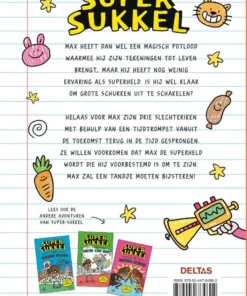 SUPER
SUKKEL
MAX HEEFT DAN WEL EEN MAGISCH POTLOOD
WAARMEE HIJ ZIJN TEKENINGEN TOT LEVEN
BRENGT, MAAR HIJ HEEFT NOG WEINIG
ERVARING ALS SUPERHELD. IS HIJ WEL KLAAR
OM GROTE SCHURKEN UIT TE SCHAKELEN?
HELAAS VOOR MAX ZIJN DRIE SLECHTERIKEN
MET BEHULP VAN EEN TIJDTROMPET VANUIT
DE TOEKOMST TERUG IN DE TIJD GESPRONGEN.
ZE WILLEN VOORKOMEN DAT MAX DE SUPERHELD
WORDT DIE HIJ VOORBESTEMD IS OM TE ZIJN.
MAX ZAL EEN TANDJE MOETEN BIJSTEKEN!
LEES OOK DE
ANDERE AVONTUREN
VAN SUPER-SUKKEL
SUPER
SUKKEL
SUPER
SUKKEL
SUPER
SUKKEL
DELTAS